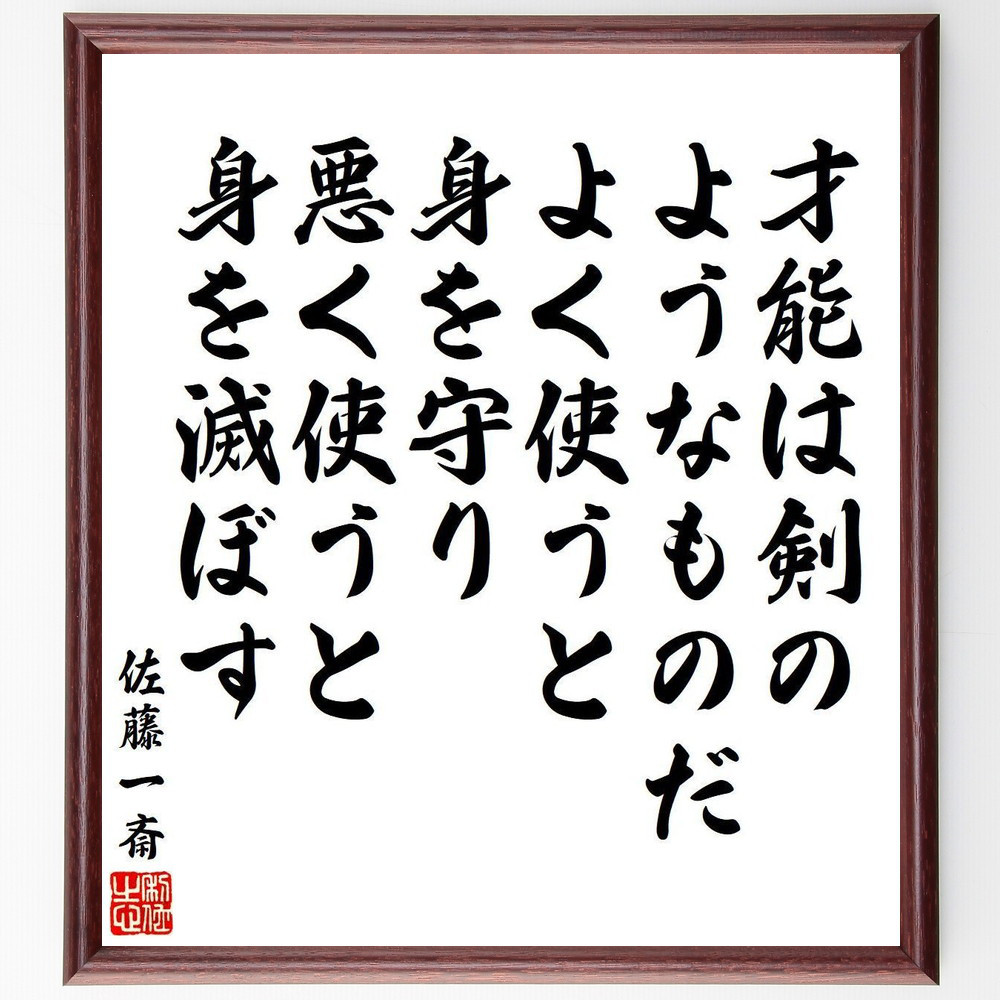 才能は剣の
ようなものだ
よく使うと
身を守り
悪く使うと
身を滅ぼす
佐藤一斎